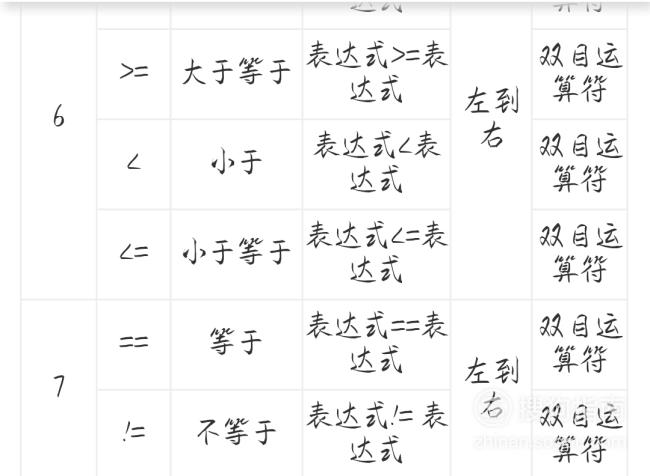 达式
算符
6
>=
大于等于
表达式>=表
达式
左到
右
双目运
算符
<
小于
表达式<表
达式
双目运
算符
<=
小于等于
表达式<=表
达式
双目运
算符
7
==
等于
表达式==表
达式
左到
右
双目运
算符
!=
不等于
表达式!=表
达式
双目运
算符
搜狗指南